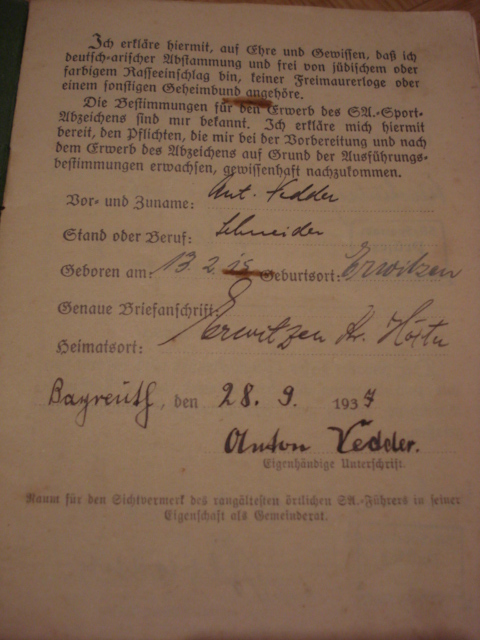 Ich erkläre hiermit, auf Ehre und Gewissen, daß ich
deutsch-arischer Abstammung und frei von jüdischem oder
farbigem Rasseeinschlag bin, keiner Freimaurerloge oder
einem sonstigen Geheimbund angehöre.
Die Bestimmungen für den Erwerb des SA.-Sport-
Abzeichens sind mir bekannt. Ich erkläre mich hiermit
bereit, den Pflichten, die mir bei der Vorbereitung und nach
dem Erwerb des Abzeichens auf Grund der Ausführungs-
bestimmungen erwachsen, gewissenhaft nachzukommen.
Vor- und Zuname: Ant. Vedder
Stand oder Beruf: Schneider
Geboren am: 13.2.15 Geburtsort: Erwitzen
Genaue Briefanschrift:
Heimatsort: Erwitzen Kr. Höxter
Bayreuth, den 28. 9. 1937
Anton Vedder.
Eigenhändige Unterschrift.
Raum für den Sichtvermerk des rangältesten örtlichen SA.-Führers in seiner
Eigenschaft als Gemeinderat.